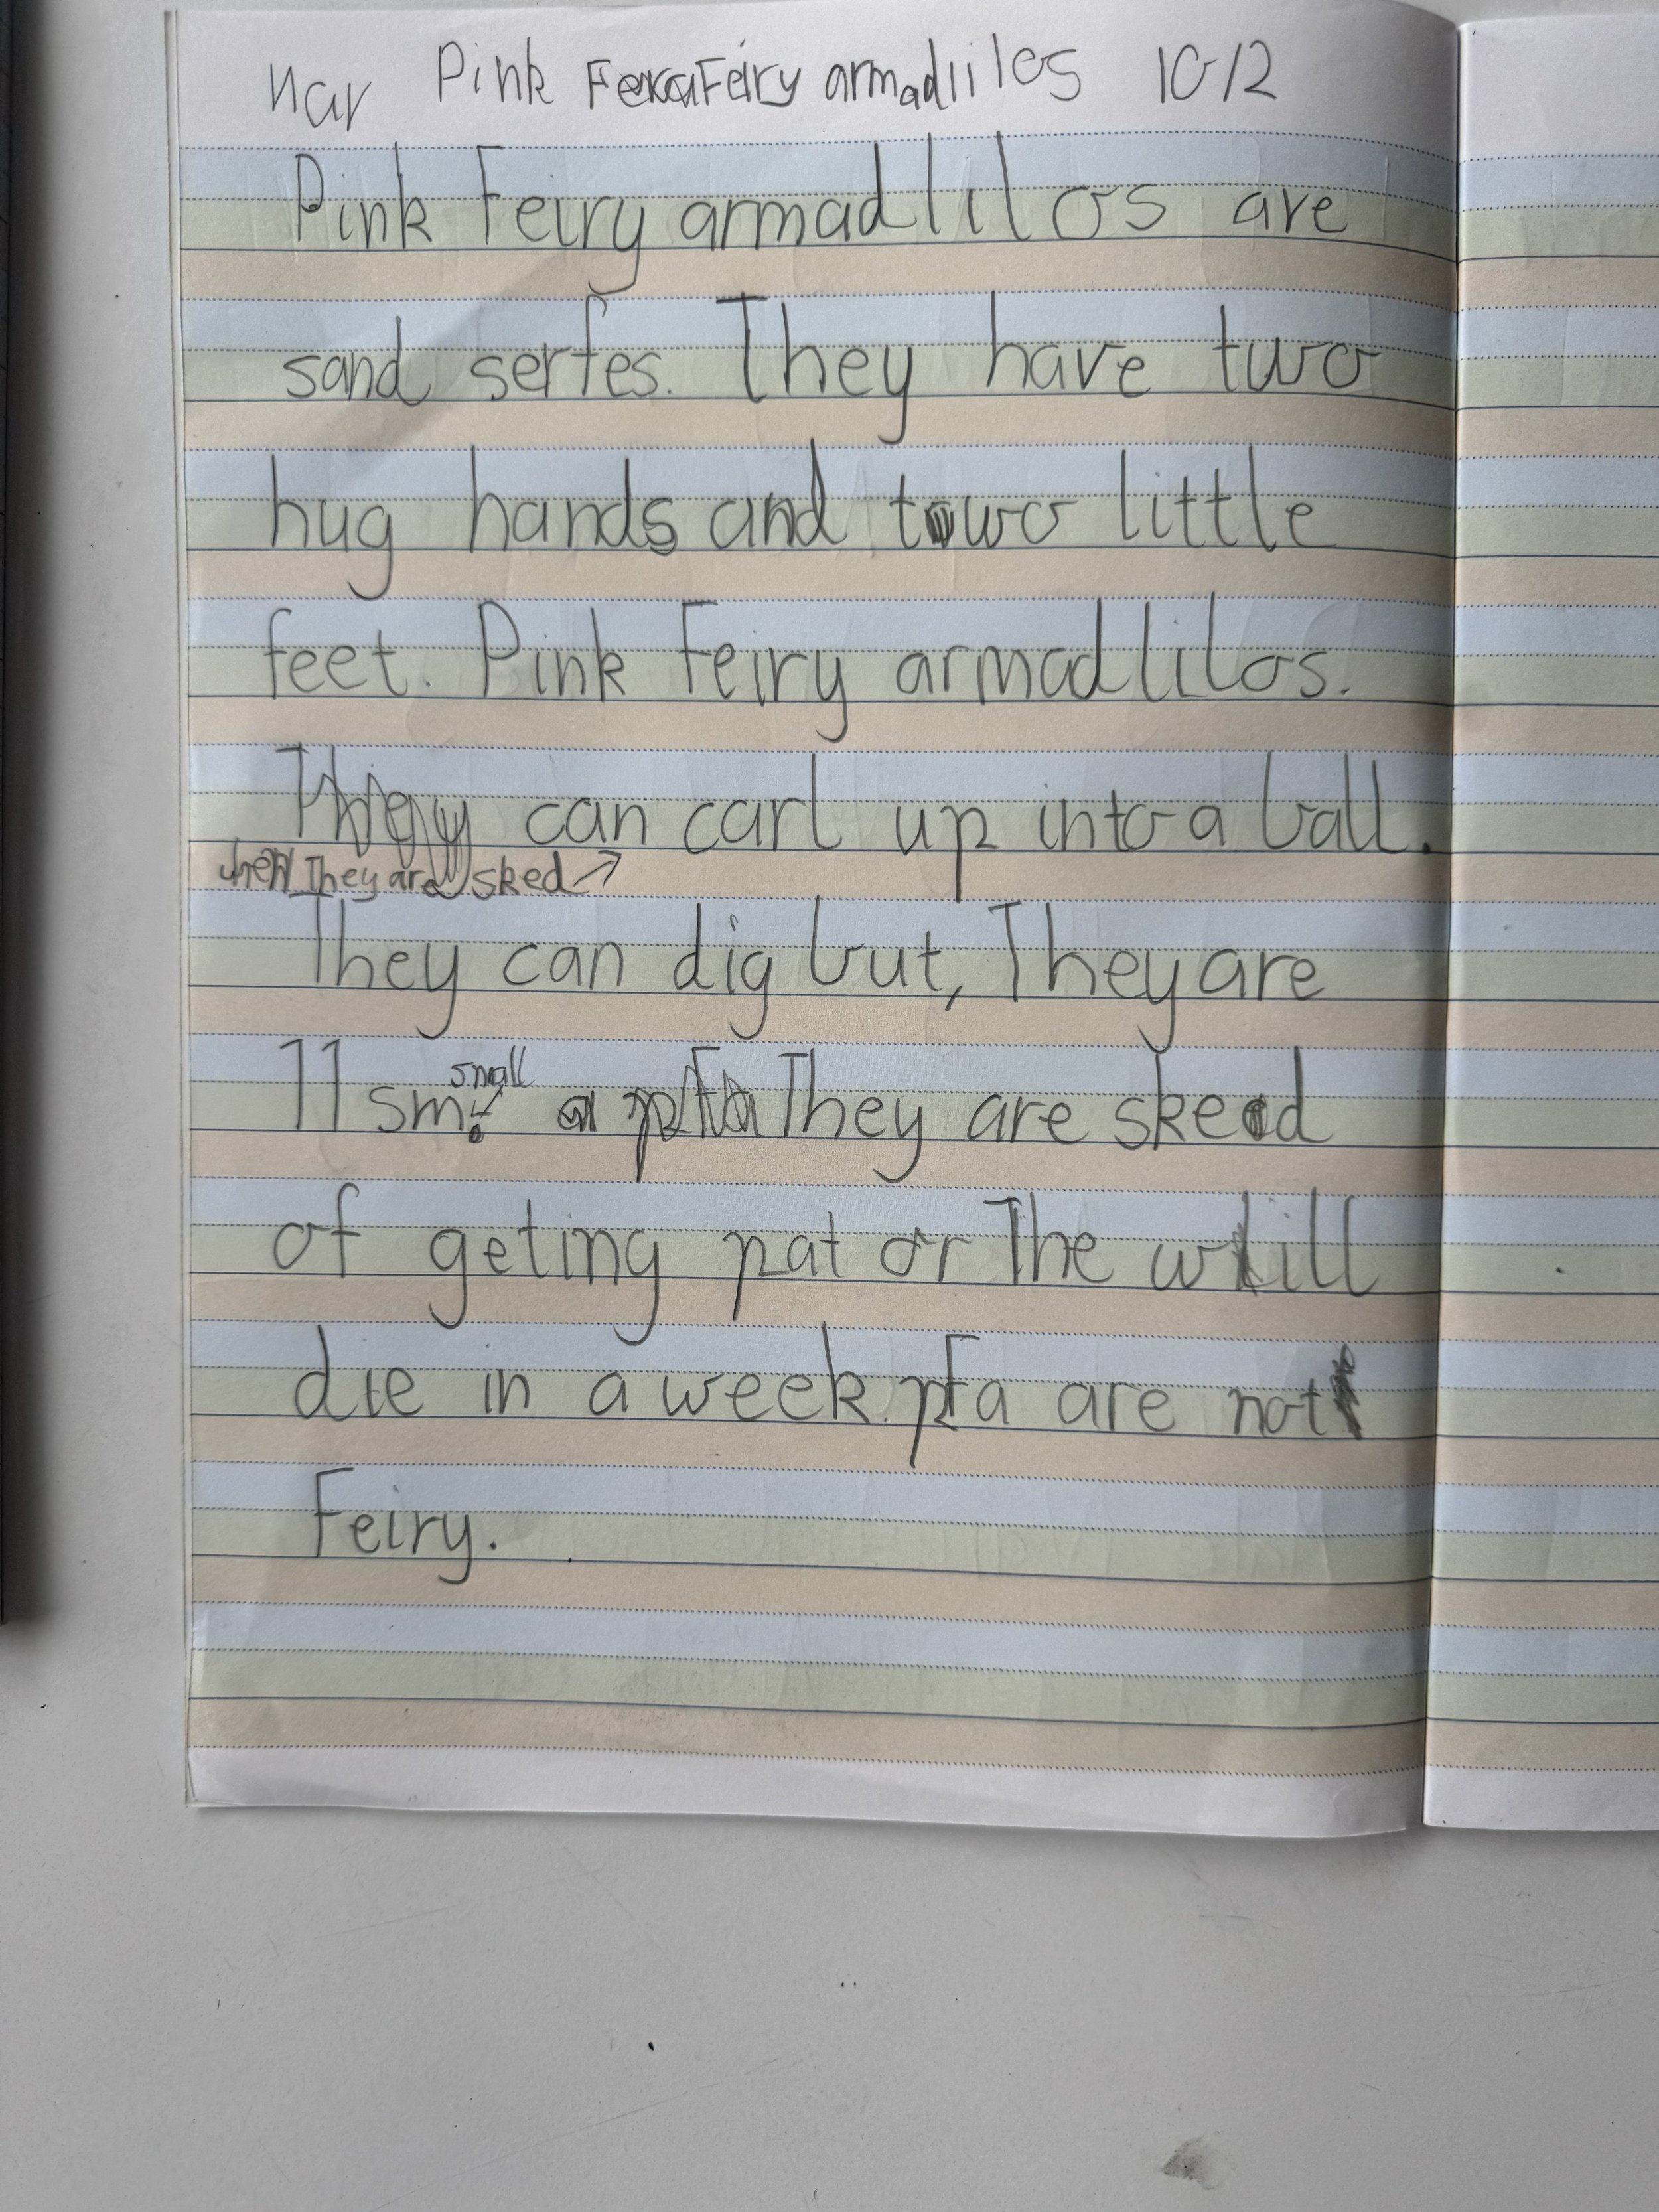 nar Pink Feiry armadlilos 10/2
Pink Feiry armadlilos are
sand serfes. They have two
hug hands and two little
feet. Pink Feiry armadlilos.
They can carl up into a ball.
when They are sked ↗
They can dig but, They are
small
11 sm. They are sked
of geting pat or The will
die in a week. pfa are not
Feiry.